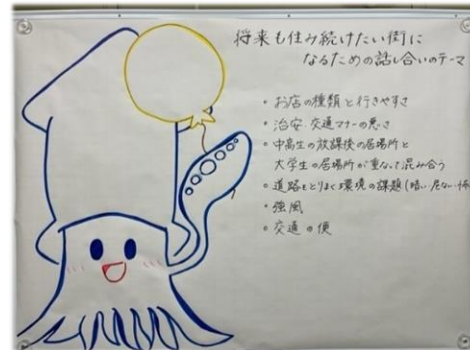 将来も住み続けたい街に
なるための話し合いのテーマ
・お店の種類と行きやすさ
・治安・交通マナーの悪さ
・中高生の放課後の居場所と
大学生の居場所が重なって混み合う
・道路をとりまく環境の課題(暗い・危ない・
・強風
・交通の便